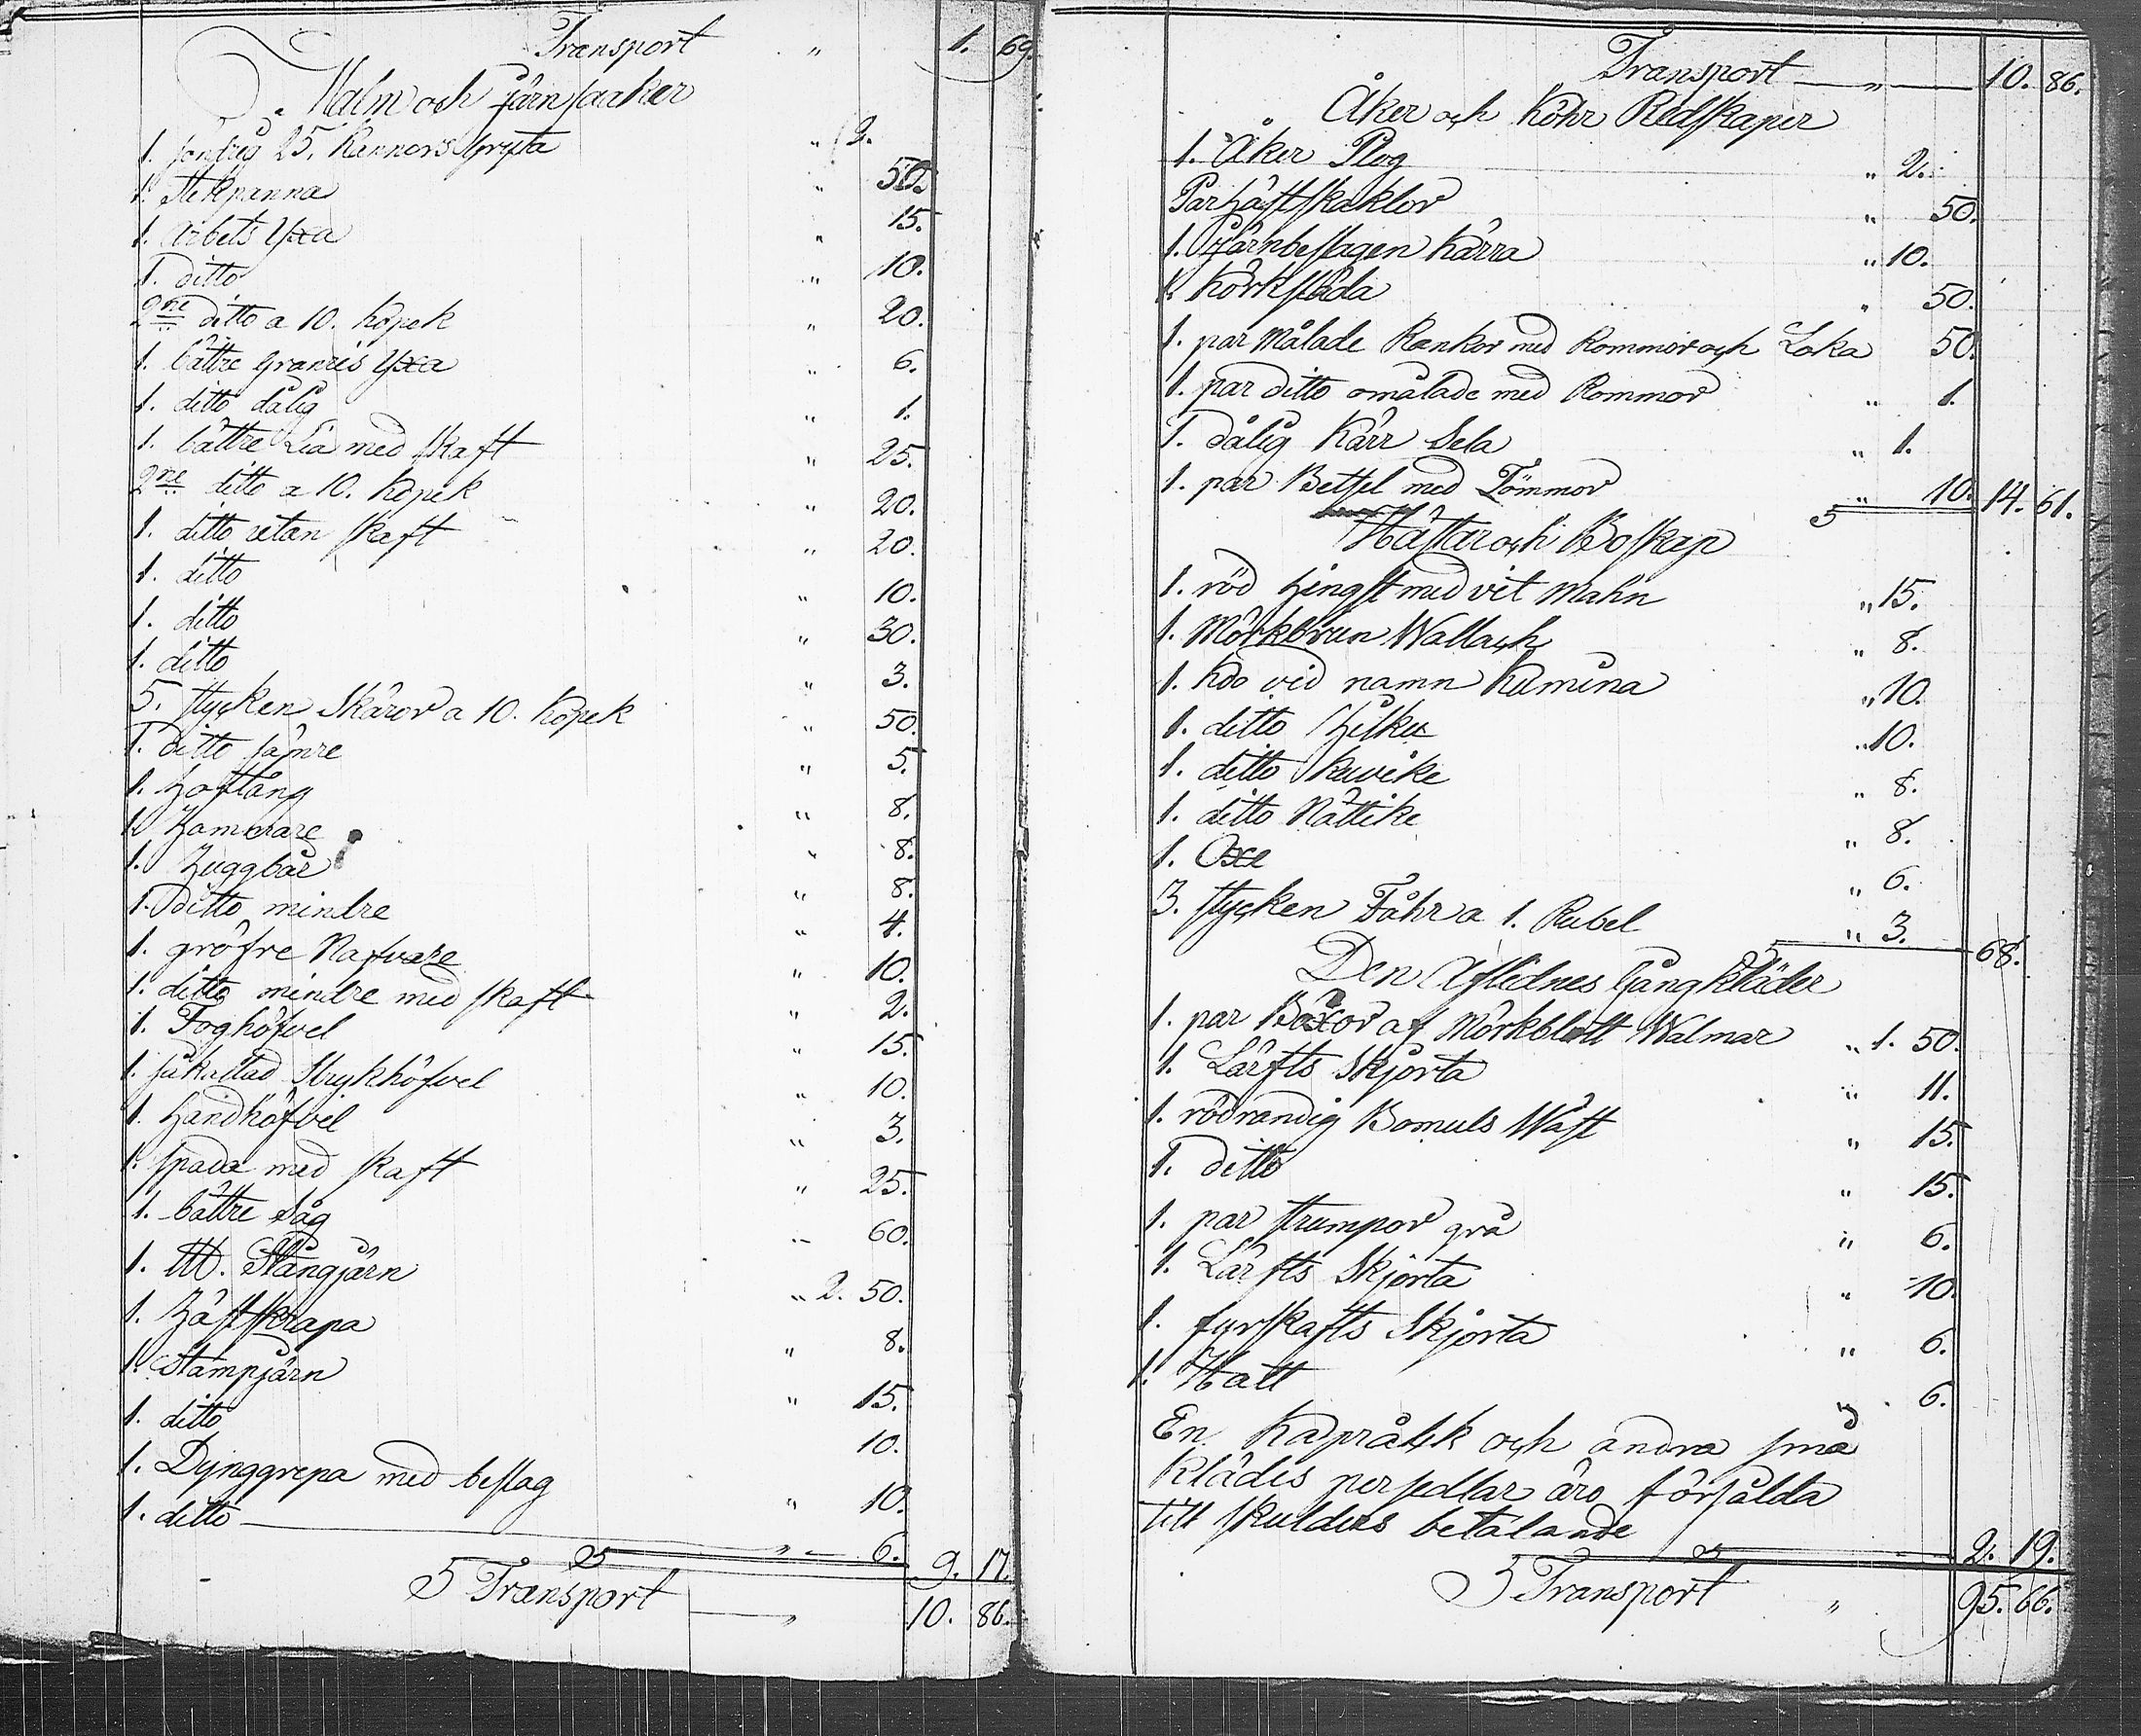 Transport " 1. 69.
Malm och Järnsaker
1. söndrig 25. Kannors Gryta " 2.
1. Stekpanna " 50.
1. Arbets Yxa " 15.
1. ditto " 10.
2ne ditto a 10. Kopek " 20.
1. bättre granris Yxa " 6.
1. ditto dålig " 1.
1. bättre Lia med skaft " 25.
2ne ditto a 10. Kopek " 20.
1. ditto utan skaft " 20.
1. ditto " 10.
1. ditto " 30.
1. ditto " 3.
5. stycken Skäror a 10. Kopek " 50.
1. ditto sämre " 5.
1. Hoftång " 8.
1. Hamrare " 8.
1. Huggbår " 8.
1. ditto mindre " 4.
1. gröfre Nafvare " 10.
1. ditto mindre med skaft " 2.
1. Foghöfvel " 15.
1. såkallad Strykhöfvel " 10.
1. Handhöfvel " 3.
1. spada med skaft " 25.
1. bättre Såg " 60.
1. Stångjärn " 2. 50.
1. Hästskrapa " 8.
1. Stampjärn " 15.
1. ditto 10.
1. Dynggrepa med beslag " 10.
1. ditto " 6. 9. 17.
S Transport " 10. 86.
Transport " 10. 86.
Åker och Köhr Redskaper
1. Åker Plog " 2.
Par Hästskaklor " 50.
1. Järnbeslagen Kärra " 10.
1. Körkslida " 50.
1. par Målade Rankor med Rommor och Loka 50.
1. par ditto omålade med Rommor " 1.
1. dålig Kärr Sela " 1.
1. par Bettsel med Tömmor " 10. 14. 61.
Hästar och Boskap
1. röd Hingst med vit Mahn " 15.
1. Mörkbrun Wallach " 8.
1. Kdo vid namn Kämina " 10.
1. ditto Hilku " 10.
1. ditto Kuvike " 8.
1. ditto Nättike " 8.
1. Oxe " 6.
3. stycken Fåhr a 1. Rubel " 3.
68.
Den Aflidnes Gångkläder
1. par Böxor af Mörkblått Walmar " 1. 50.
1. Lärfts Skjorta " 11.
1. rödrandig Bomuls Wäst " 15.
1. ditto " 15.
1. par strumpor grå " 6.
1. Lärfts Skjorta " 10.
1. fyrskafts Skjorta " 6.
1. Hatt " 6.
En Kapråck och andra små
Klädes persedlar äro försålda
till skuldens betalande 2. 19.
S Transport " 95. 66.